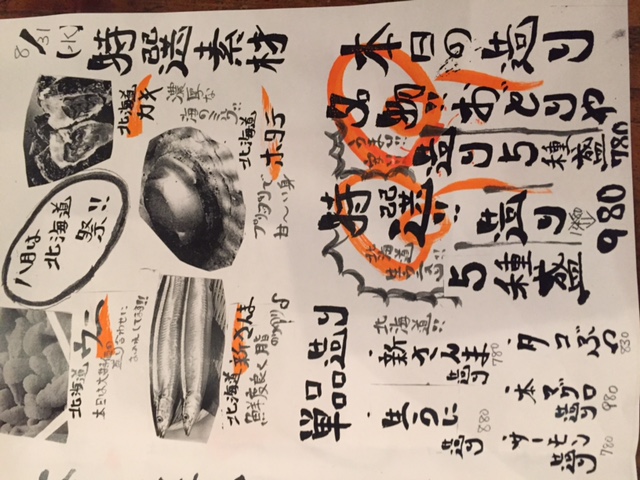 本日の造り
名物!!おどりや
造り5種盛 780
特選!!造り
5種盛 980
北海道
単品造り
北海道!!
・新さんま造り 780
・生うに造り 880
・タコぶつ 830
・本マグロ造り 980
・サーモン造り 780
8/31(水)
特選素材
北海道カキ
濃厚な
海のミルク!!
北海道ホタテ
プリプリで
甘〜い身
八月は
北海道
祭!!
北海道新さんま
鮮度良く脂
のり◎!♪
北海道ウニ